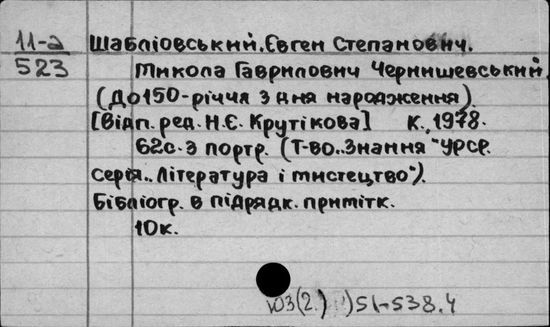 11-а Шабліовський, Євген Степанович.
523 Микола Гаврилович Чернишевський.
(До 150-річчя з дня народження).
[Відп. ред. Н.Є. Крутікова] К., 1978.
62с. з портр. (Т-во „Знання" УРСР.
серія „Література і мистецтво").
Бібліогр. в підрядк. примітк.
10к.
)51-538.4